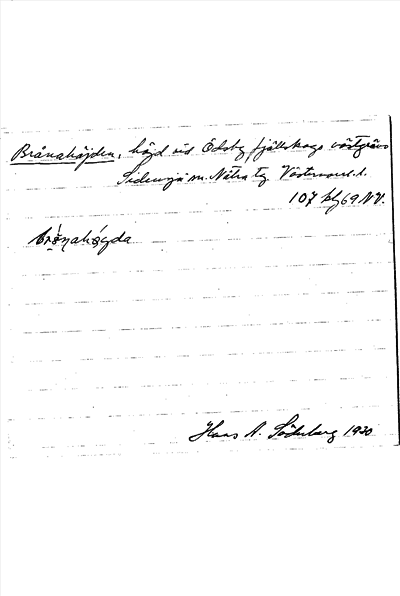 Brånahöjden, höjd vid Ödsby fjällskogs västgräns
Sidensjö m. Nätra tg. Västernorrl. l.
107 bl 69 NV.
brǻnahø̀gda
Hans A. Söderberg 1930